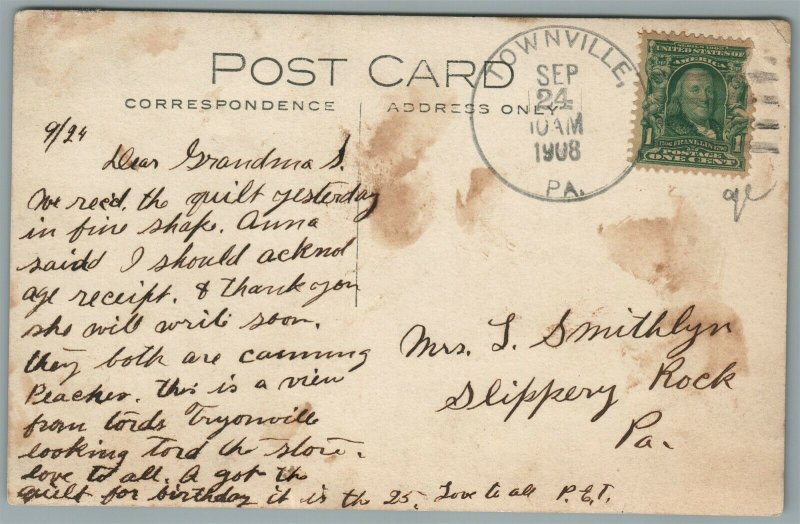 POST CARD
CORRESPONDENCE
ADDRESS ONLY.
TOWNVILLE,
SEP
24
10AM
1908
PA.
SERIES 1902
UNITED STATES OF
AMERICA
1
FRANKLIN
1
POSTAGE
ONE CENT
9/24
Dear Grandma S.
We rec'd. the quilt yesterday
in fine shape. Anna
said I should acknol
age receipt. & thank you
she will write soon.
they both are canning
Peaches. this is a view
from lords Tryonville
looking tord the store.
love to all. A got the
quilt for birthday it is th 25. Love to all P.E.T.
Mrs. L. Smithlyn
Slippery Rock
Pa.